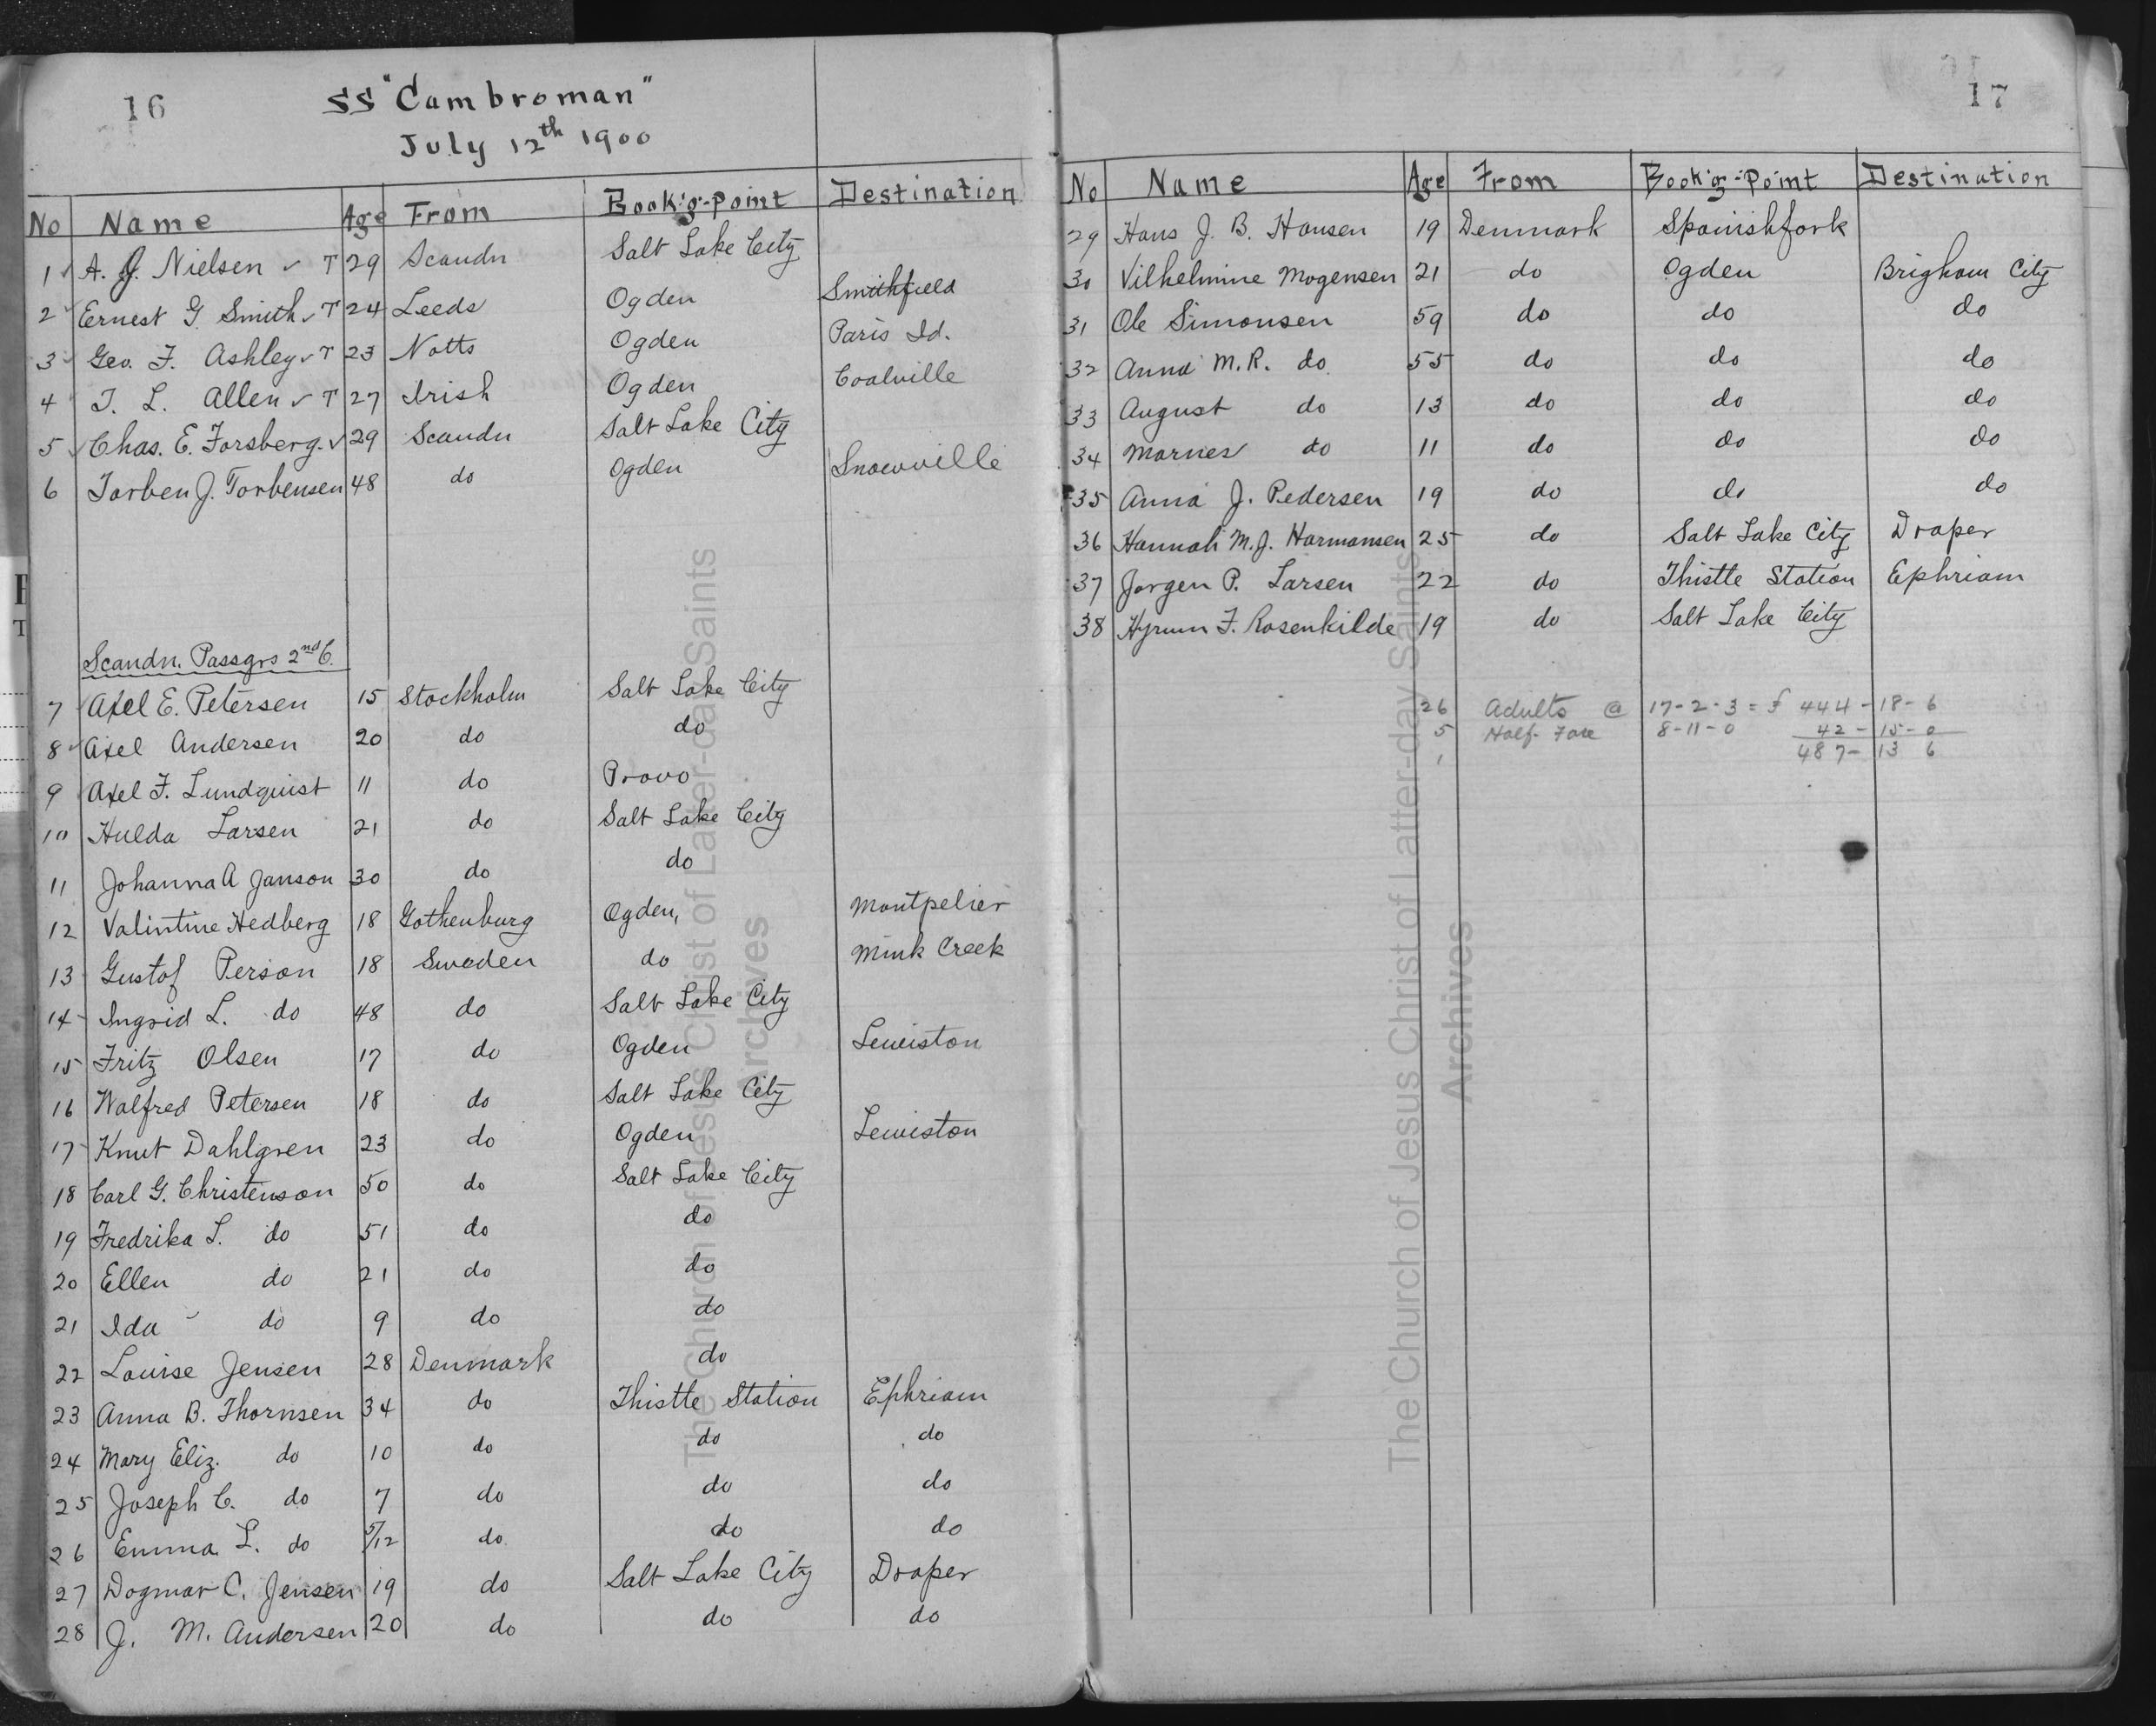 16
SS "Cambroman"
July 12th 1900
No Name Age From Book'g-point Destination
1 A. J. Nielsen T 29 Scandn Salt Lake City
2 Ernest G. Smith T 24 Leeds Ogden Smithfield
3 Geo. F. Ashley T 23 Notts Ogden Paris Id.
4 T. L. Allen T 27 Irish Ogden Coalville
5 Chas. E. Forsberg. 29 Scandn Salt Lake City
6 Torben J. Torbensen 48 do Ogden Snowville
Scandn. Passgrs 2nd C.
7 Axel E. Petersen 15 Stockholm Salt Lake City
8 Axel Andersen 20 do do
9 Axel F. Lundquist 11 do Provo
10 Hulda Larsen 21 do Salt Lake City
11 Johanna A Janson 30 do do
12 Valintine Hedberg 18 Gothenburg Ogden, Montpelier
13 Gustof Person 18 Sweden do Mink Creek
14 Ingrid L. do 48 do Salt Lake City
15 Fritz Olsen 17 do Ogden Lewiston
16 Walfred Petersen 18 do Salt Lake City
17 Knut Dahlgren 23 do Ogden Lewiston
18 Carl G. Christenson 50 do Salt Lake City
19 Fredrika L. do 51 do do
20 Ellen do 21 do do
21 Ida do 9 do do
22 Louise Jensen 28 Denmark do
23 Anna B. Thornsen 34 do Thistle Station Ephriam
24 Mary Eliz. do 10 do do do
25 Joseph C. do 7 do do do
26 Emma L. do 5/12 do do do
27 Dagmar C. Jensen 19 do Salt Lake City Draper
28 J. M. Andersen 20 do do do
17
No Name Age From Book'g-Point Destination
29 Hans J. B. Hansen 19 Denmark Spanishfork
30 Vilhelmine Mogensen 21 do Ogden Brigham City
31 Ole Simonsen 59 do do do
32 Anna M. R. do 55 do do do
33 August do 13 do do do
34 Marnes do 11 do do do
35 Anna J. Pedersen 19 do do do
36 Hannah M. J. Harmansen 25 do Salt Lake City Draper
37 Jorgen P. Larsen 22 do Thistle Station Ephriam
38 Hyrum F. Rosenkilde 19 do Salt Lake City
26 Adults @ 17-2-3 = £ 444-18-6
5 Half-Fare 8-11-0 42-15-0
1 487-13 6
The Church of Jesus Christ of Latter-day Saints
Archives
The Church of Jesus Christ of Latter-day Saints
Archives